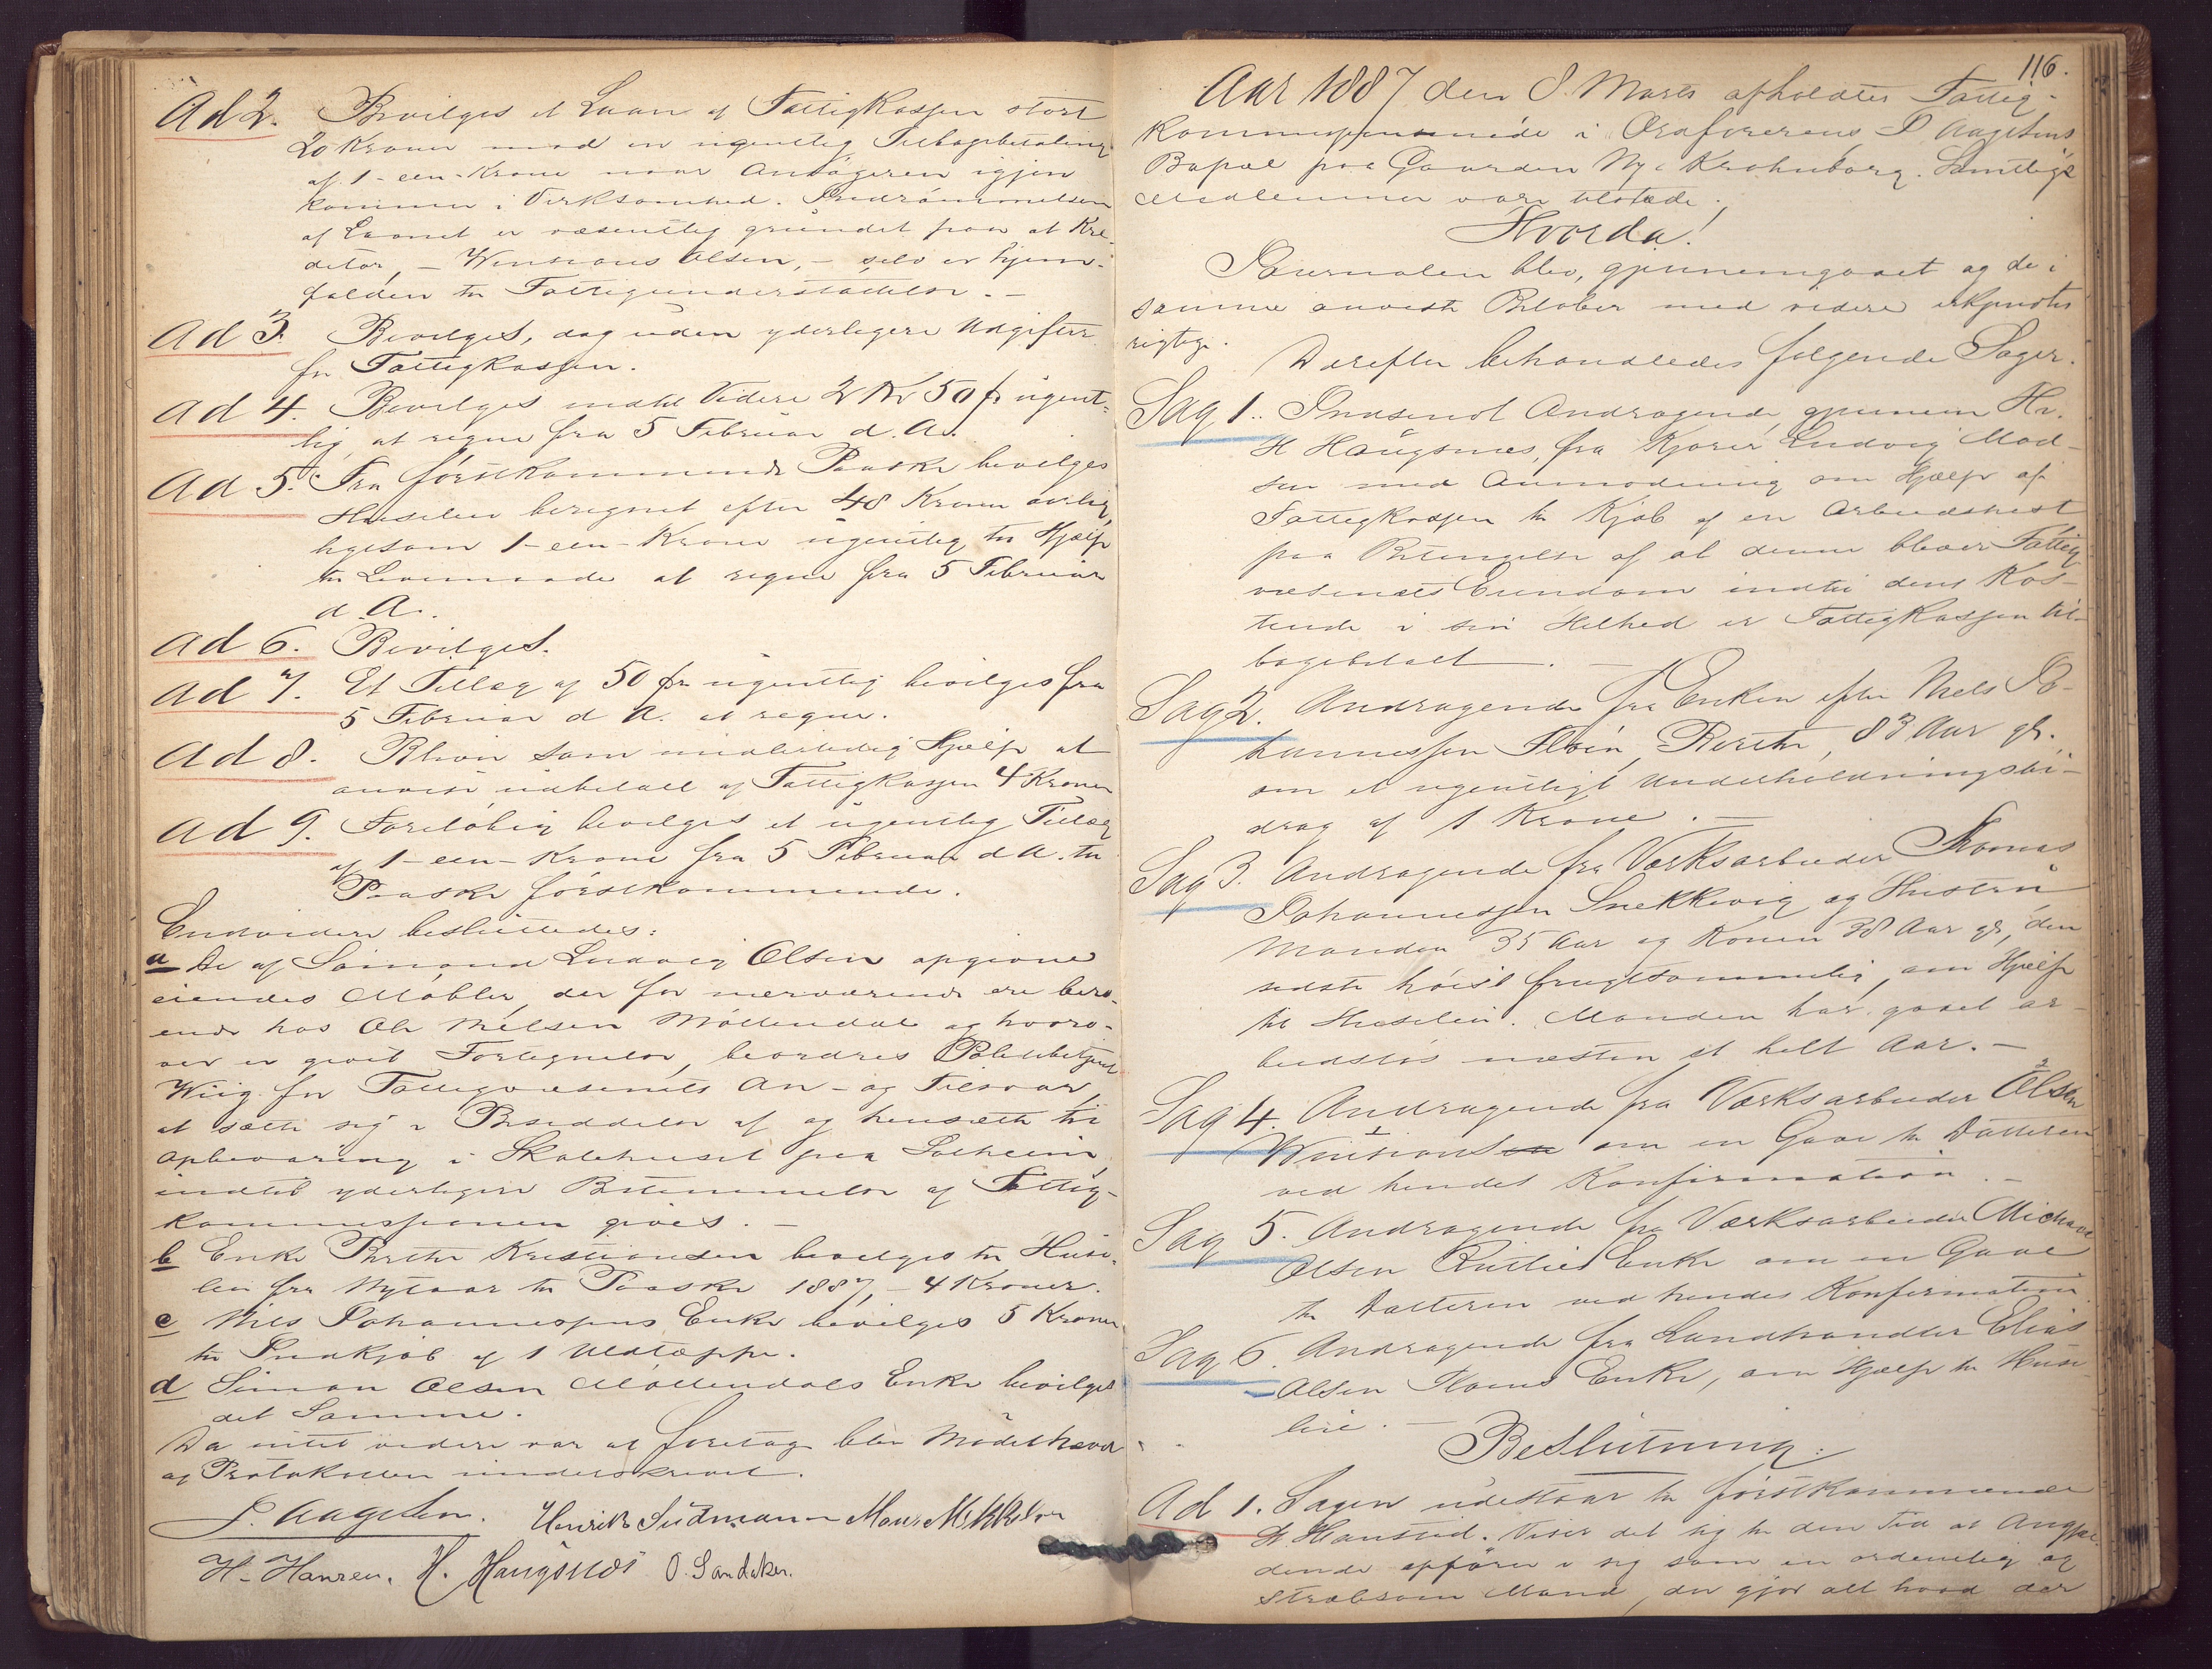 Ad 2. Bevilges et Laan af Fattigkassen stort
20 Kroner mod en ugentlig Tilbagebetaling
af 1-een-Krone naar Ansøgeren igjen
kommer i Virksomhed. Indrømmelsen
af Laanet er væsentlig grundet paa at Kre-
ditor, - Wintsons Olsen, - selv er hjem-
falden til Fattigunderstøttelse. -
Ad 3. Bevilges, dog uden yderligere Udgifter
for Fattigkassen.
Ad 4. Bevilges indtil Videre 2 Kr 50 Ør ugent-
lig at regne fra 5 Februar d. A.
Ad 5. Fra førstkommende Paaske bevilges
Husleie beregnet efter 48 Kroner aarlig,
ligesom 1-een-Krone ugentlig til Hjælp
til Levemaade at regne fra 5 Februar
d A.
Ad 6. Bevilges.
Ad 7. Et Tillæg af 50 Ør ugentlig bevilges fra
5 Februar d A. at regne.
Ad 8. Bliver som midlertidig Hjælp at
anvise udbetalt af Fattigkassen 4 Kroner
Ad 9. Foreløbig bevilges et ugentlig Tillæg
af 1-een-Krone fra 5 Februar d A. til
Paaske førstkommende.
Endvidere besluttedes:
a De af Simon Ludvig Olsen opgivne
eiendes Møbler, der for nærværende ere bero-
ende hos Ole Nilsen Møllendal og hvoro-
ver er givet Fortegnelse, beordres Politibetjent
Wiig for Fattigvæsenets An- og Tilsvar,
at sætte sig i Besiddelse af og hensætte til
opbevaring i Skolehuset paa Solheim,
indtil yderligere Bestemmelse af Fattig-
kommissionen gives. -
b Enke Berthe Kristiansen bevilges til Huse-
leie fra Nytaar til Paaske 1887, - 4 Kroner.
c Nils Johannessens Enke bevilges 5 Kroner
til Indkjøb af 1 Uldtæppe.
d Simon Olsen Møllendals Enke bevilges
det Samme.
Da intet videre var at foretage blev Mødet hævet
og Protokollen underskrevet.
P. Aagesen. Henrik Sudmann Mons Mikkelsen
H. Hansen. H. Haugsnæs O. Sandaker.
116.
Aar 1887 den 8. Marts afholdtes Fattig-
kommissionsmøde i Ordførerens P Aagesens
Bopæl paa Gaarden Ny Krohnborg. Samtlige
Medlemmer vare tilstede.
Hvorda!
Journalen blev gjennemgaaet og de i
samme anviste Beløber med videre erkjendtes
rigtige.
Derefter behandledes følgende Sager.
Sag 1. Indsendt Andragende gjennem Hr.
H Haugsnæs, fra Kjører Ludvig Mad-
sen med Anmodning om Hjælp af
Fattigkassen til Kjøb af en Arbeidshest
paa Betingelse af at denne bliver Fattig
væsenets Eiendom indtil dens Kos-
tende i sin Helhed er Fattigkassen til-
bagebetalt. -
Sag 2. Andragende fra Enken efter Niels Jo-
hannessen Fløen, Berthe, 83 Aar gl.
om et ugentligt Underholdningsbi-
drag af 1 Krone. -
Sag 3. Andragende fra Værksarbeider Thomas
Johannessen Snekkevig og Hustru
Manden 35 Aar og Konen 38 Aar gl, den
sidste høist frugtsommelig, om Hjælp
til Husleie. Manden har gaaet ar-
beidsløs næsten et helt Aar. -
Sag 4. Andragende fra Værksarbeider Olsen
Wintsons om en Gave til Datteren
ved hendes Konfirmation. -
Sag 5. Andragende fra Værksarbeider Michael
Olsen Enke om en Gave
til Datteren ved hendes Konfirmation.
Sag 6. Andragende fra Landhandler Elias
Olsen Enke, om Hjælp til Huse-
leie. -
Beslutning:
Ad 1. Sagen udestaar til førstkommende
Høimøde. Viser det sig til den Tid at Angjæl-
dende opfører i sig som en ordentlig og
stræbsom Mand, der gjør alt hvad der